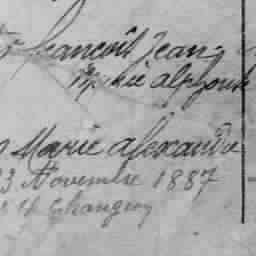 françoit Jean
Marie alphonse
Marie alexandre
3 Novembre 1887